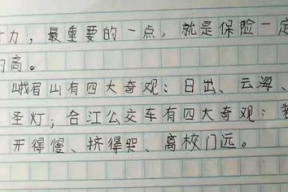 力，最重要的一点，就是保险一定
的高。
峨眉山有四大奇观：日出、云海、
圣灯，合江公交车有四大奇观：
开得慢、挤得哭、离校门远。